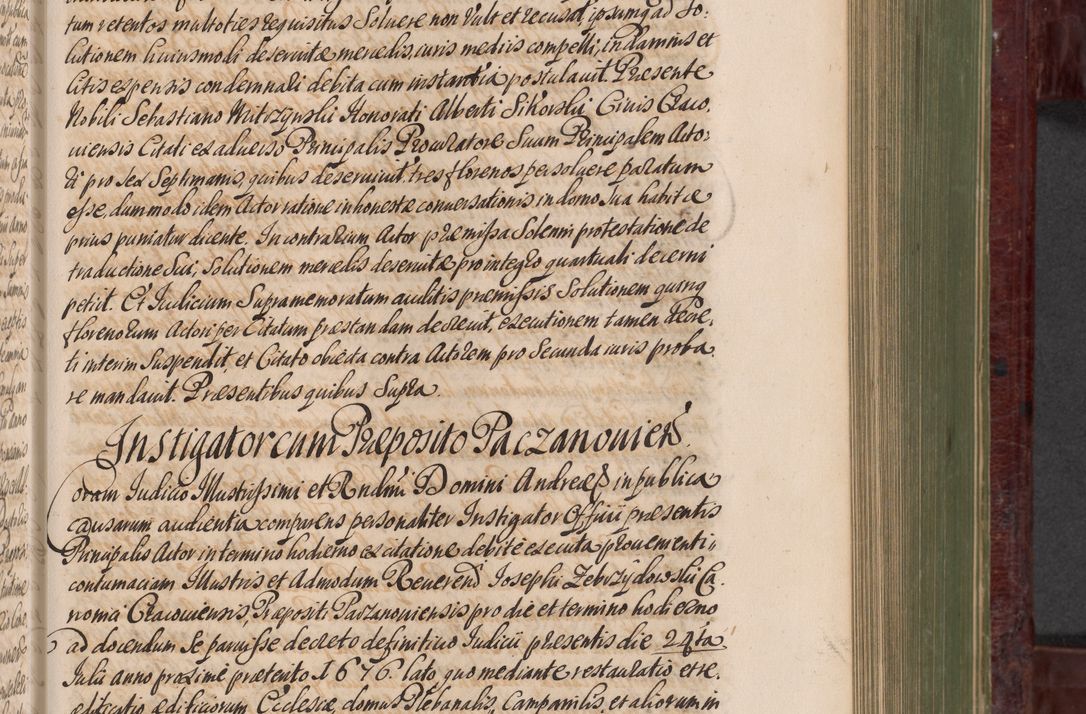 tum retentos multoties requisitus Soluere non Vult et recusat, ipsumq ad So:
lutionem huiusmodi deseruitæ mercedis, iuris mediis compelli, in damnis et
litis expensis condemnari debita cum instantia postulauit. Præsente
Nobili Sebastiano Mitrzynski Honorati Alberti Sikorski Ciuis Craco.
uiensis Citati ex aduerso Principalis Procuratore Suum Principalem Acto:
ri pro sex Septimanis, quibus deseruiuit, tres florenos persoluere paratum
esse, dummodo idem Actor ratione inhonestæ conuersationis in domo sua habitæ
prius puniatur dicente. In contrarium Actor præmissa Solenni protestatione de
traductione Sui, Solutionem mercedis deseruitæ pro integro quartuali decerni
petiit. Et Iudicium Supramemoratum auditis præmissis Solutionem quinq
florenorum Actori per Citatum præstandam decreuit, executionem tamen decre.
ti interim Suspendit, et Citato obiecta contra Actorem pro Secunda iuris proba.
re mandauit. Præsentibus quibus Supra.
Instigator cum Præposito Paczanouien
Coram Iudicio Illustrissimi et Rndmi Domini Andreæ in publica
causarum audientia comparens personaliter Instigator Officii præsentis
Principalis Actor in termino hodierno ex citatione debite executa prouenienti
contumaciam Illustris et Admodum Reueren Iosephi Zebrzydowski Ca.
nonici Cracouiensis, Præpositi Paczanouiensis pro die et termino hodierno
ad docendum Se paruisse decreto definitiuo Iudicii præsentis die 24ta
Iulii anno proxime præterito 1676. lato quo mediante restauratio et re.
ædificatio ædificiorum Ecclesiæ, domus Plebanalis, Campanilis, et aliorum in